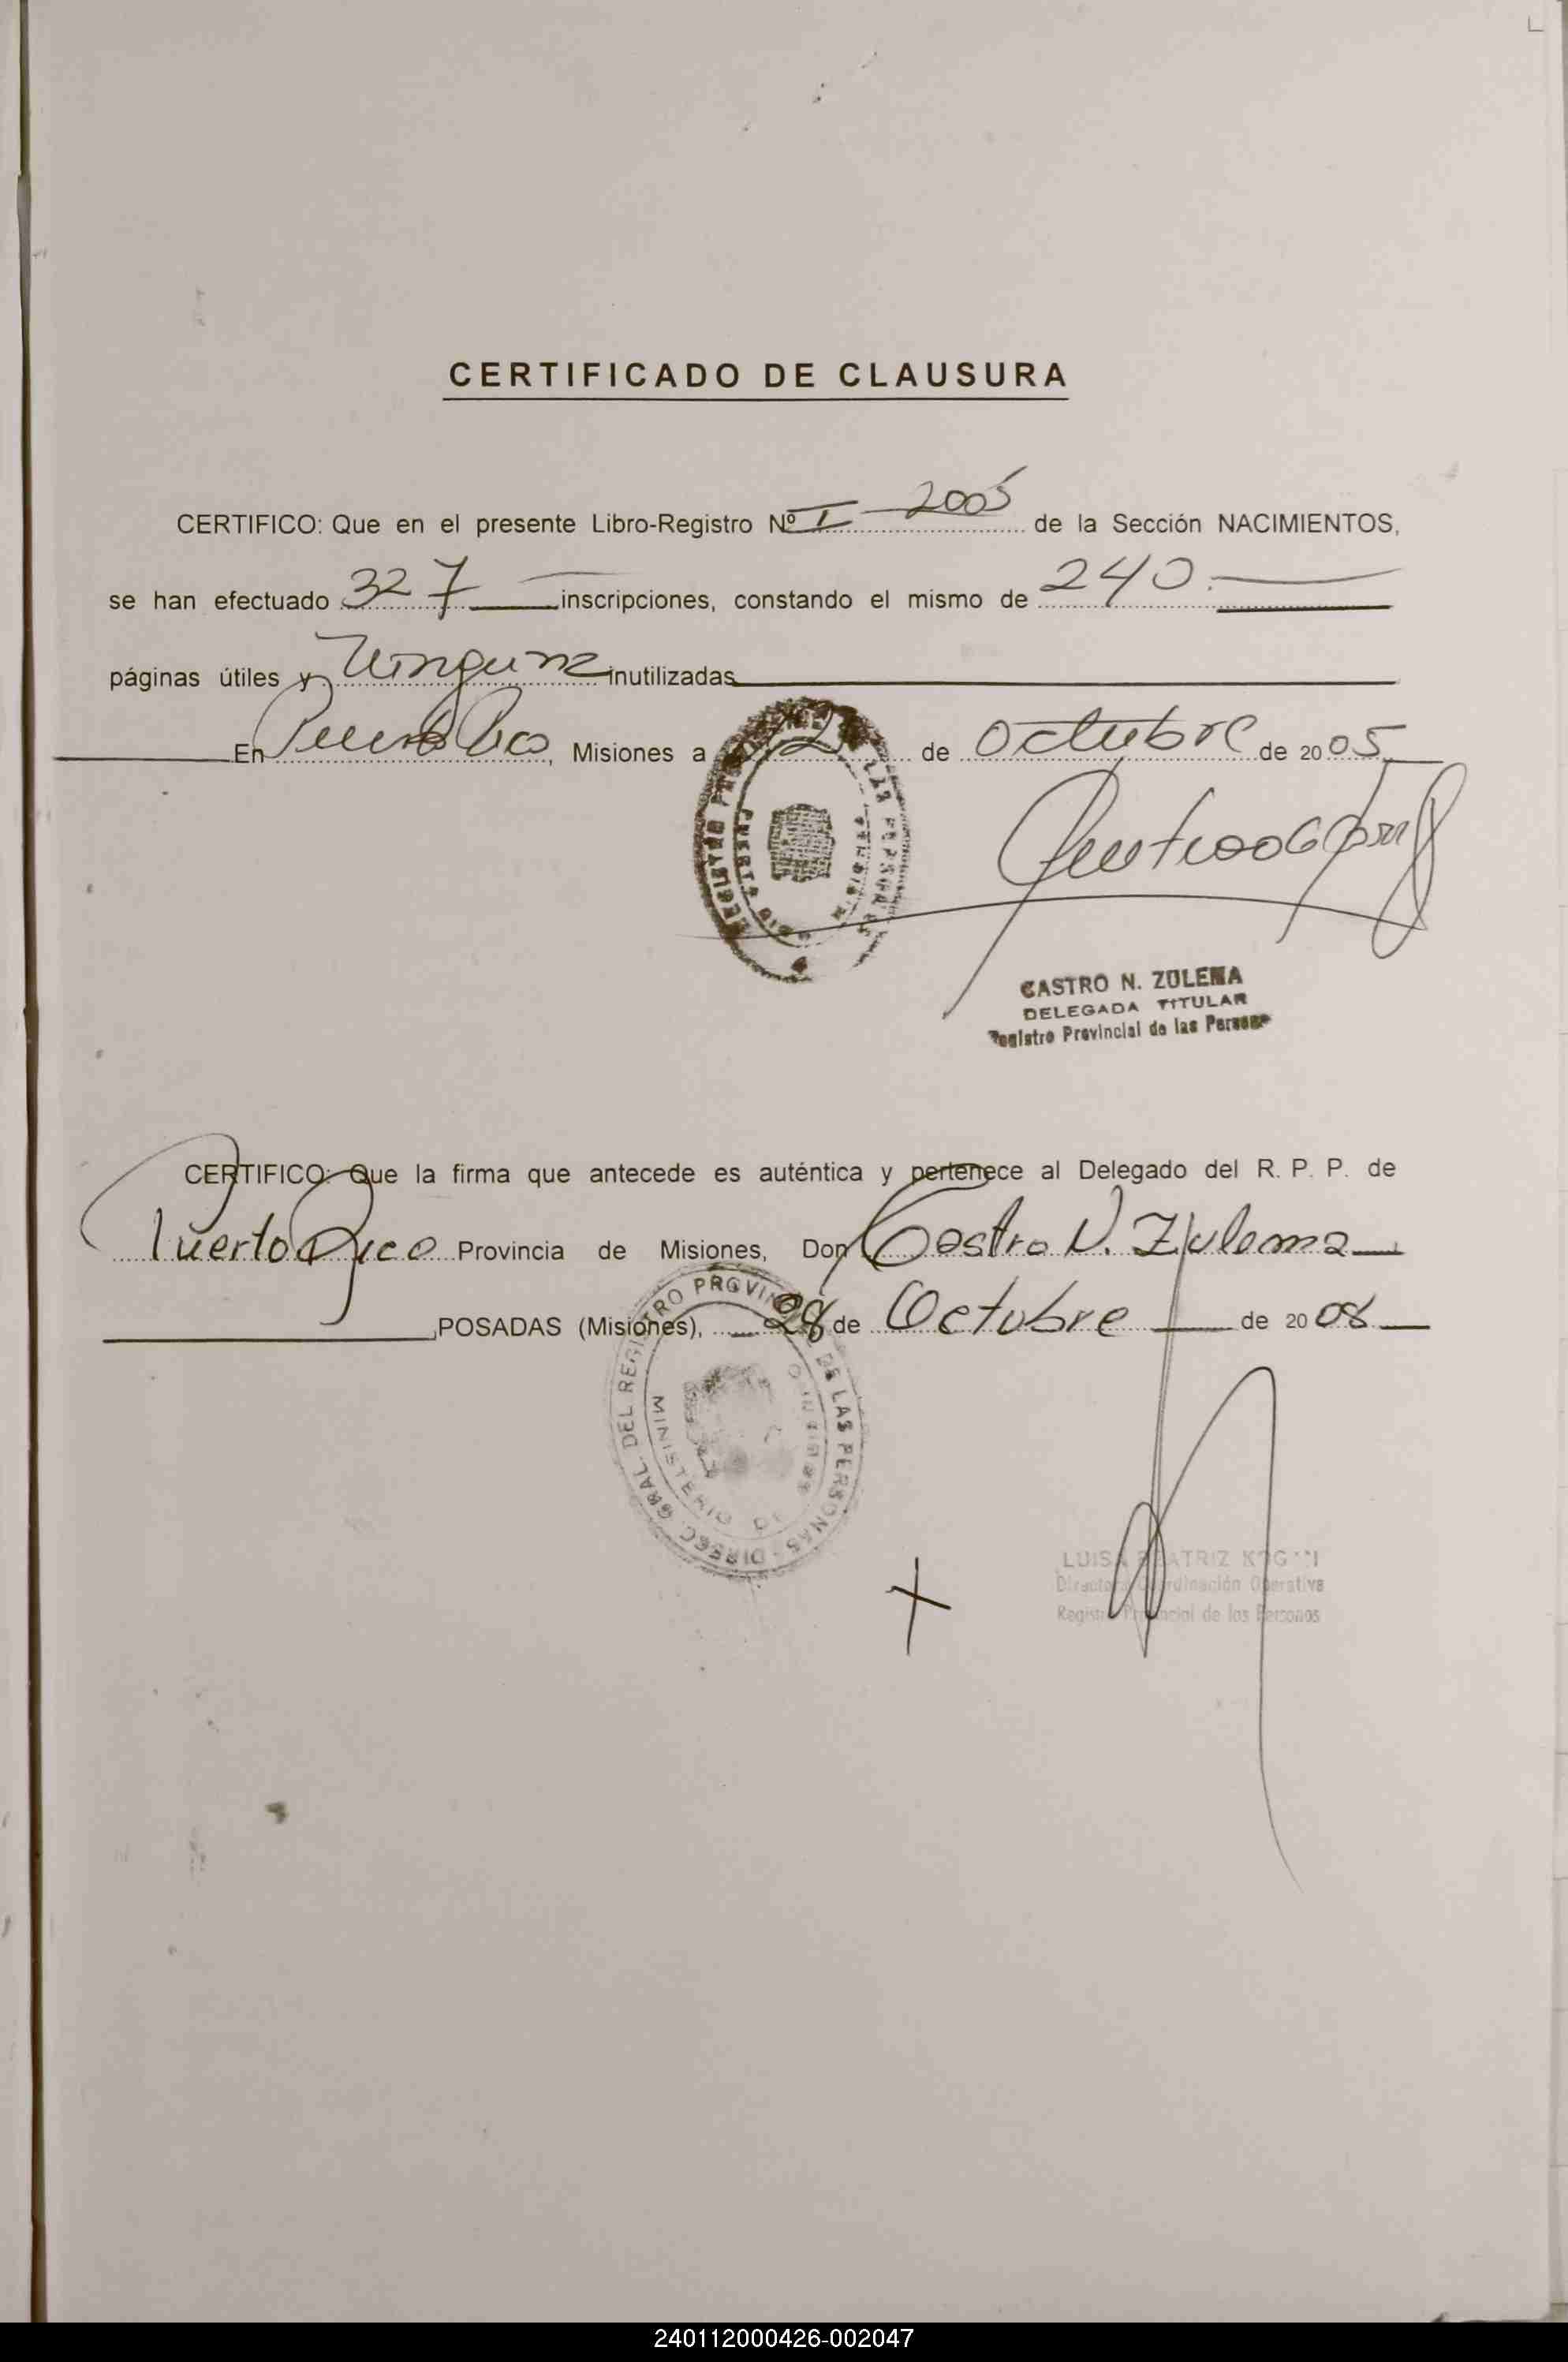 CERTIFICADO DE CLAUSURA
CERTIFICO: Que en el presente Libro-Registro Nº I - 2005 de la Sección NACIMIENTOS,
se han efectuado 327 inscripciones, constando el mismo de 240.
páginas útiles y ninguna inutilizadas
En Puerto Rico, Misiones a 12 de Octubre de 2005
REGISTRO LAS PERSONAS
PUERTO RICO
CASTRO N. ZULEMA
DELEGADA TITULAR
Registro Provincial de las Personas
CERTIFICO: Que la firma que antecede es auténtica y pertenece al Delegado del R. P. P. de
Puerto Rico Provincia de Misiones, Don Castro N. Zulema
POSADAS (Misiones), 28 de Octubre de 2008
DIREC. GRAL. DEL REGISTRO PROVINCIAL DE LAS PERSONAS
MINISTERIO DE
LUISA BEATRIZ
Directora Coordinación Operativa
Registro Provincial de las Personas
240112000426-002047